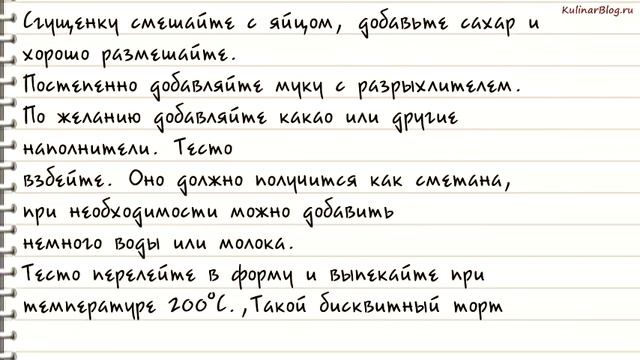 KulinarBlog.ru
Сгущенку смешайте с яйцом, добавьте сахар и
хорошо размешайте.
Постепенно добавляйте муку с разрыхлителем.
По желанию добавляйте какао или другие
наполнители. Тесто
взбейте. Оно должно получится как сметана,
при необходимости можно добавить
немного воды или молока.
Тесто перелейте в форму и выпекайте при
температуре 200°С.,Такой бисквитный торт